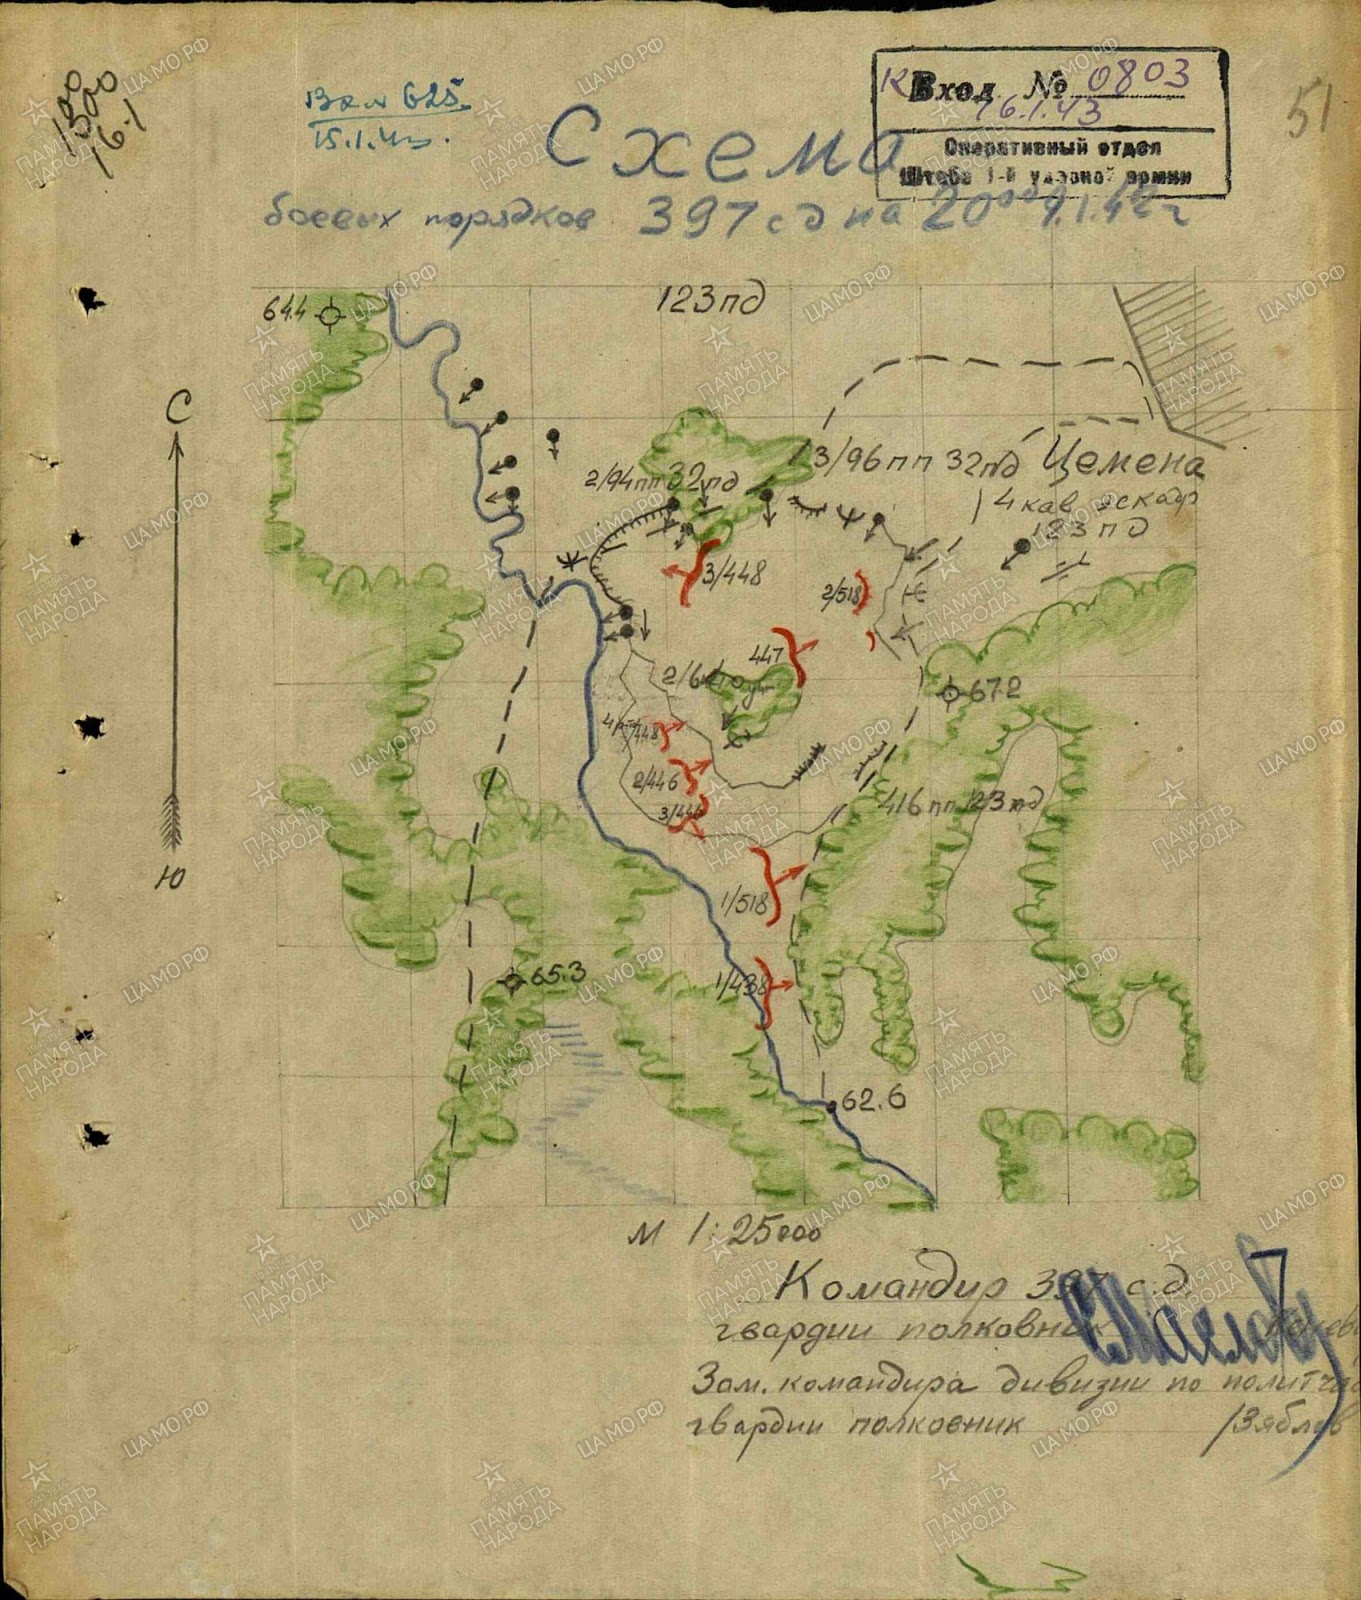 1500
1500
16.1
625
15.1.43.
Вход № 0803
16.1.43
Оперативный отдел
Штаба 1-й ударной армии
51
Схема
боевых порядков 397 сд на 20⁰⁰ 9.1.42 г
123 пд
64.4
С
3/96 пп 32 пд Цемена
2/94 пп 32 пд
14 кав эскадр
123 пд
3/448
2/518
447
2/6
67.2
448
2/446
3/446
416 пп 123 пд
1/518
65.3
1/438
62.6
Ю
М 1:25000
Командир 397 с.д.
гвардии полковник
Зам. командира дивизии по политча
гвардии полковник /Зяблов
ПАМЯТЬ НАРОДА
ЦАМО.РФ